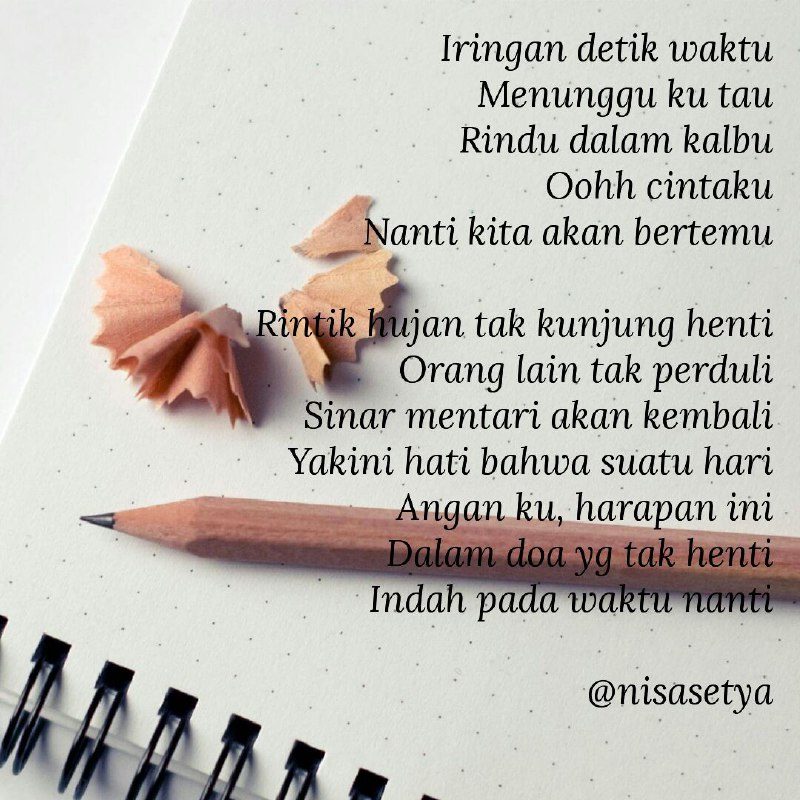 Iringan detik waktu
Menunggu ku tau
Rindu dalam kalbu
Oohh cintaku
Nanti kita akan bertemu
Rintik hujan tak kunjung henti
Orang lain tak perduli
Sinar mentari akan kembali
Yakini hati bahwa suatu hari
Angan ku, harapan ini
Dalam doa yg tak henti
Indah pada waktu nanti
@nisasetya